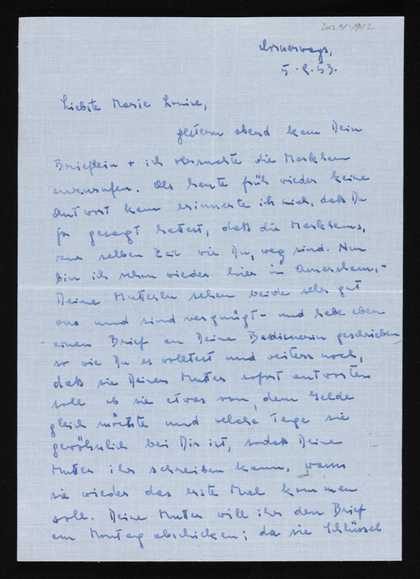 5.8.53.
Liebste Marie Louise,
gestern abend kam Dein
Brieflein + ich versuchte die Markhams
anzurufen. Als heute früh wieder keine
Antwort kam erinnerte ich mich, daß Du
ja gesagt hattest, daß die Markhams,
zur selben Zeit wie Du, weg sind. Nun
bin ich schon wieder hier in Amersham,-
Deine Mutter sehen beide sehr gut
aus und sind vergnügt - und habe eben
einen Brief an Deine Bedienerin geschrieben
so wie Du es wolltest und weiters noch,
daß sie Deiner Mutter sofort antworten
soll ob sie etwas von dem Gelde
gleich möchte und welche Tage sie
gewöhnlich bei Dir ist, sodaß Deine
Mutter ihr schreiben kann, wann
sie wieder das erste Mal kommen
soll. Deine Mutter will ihr den Brief
am Montag abschicken; da sie Schlüssel